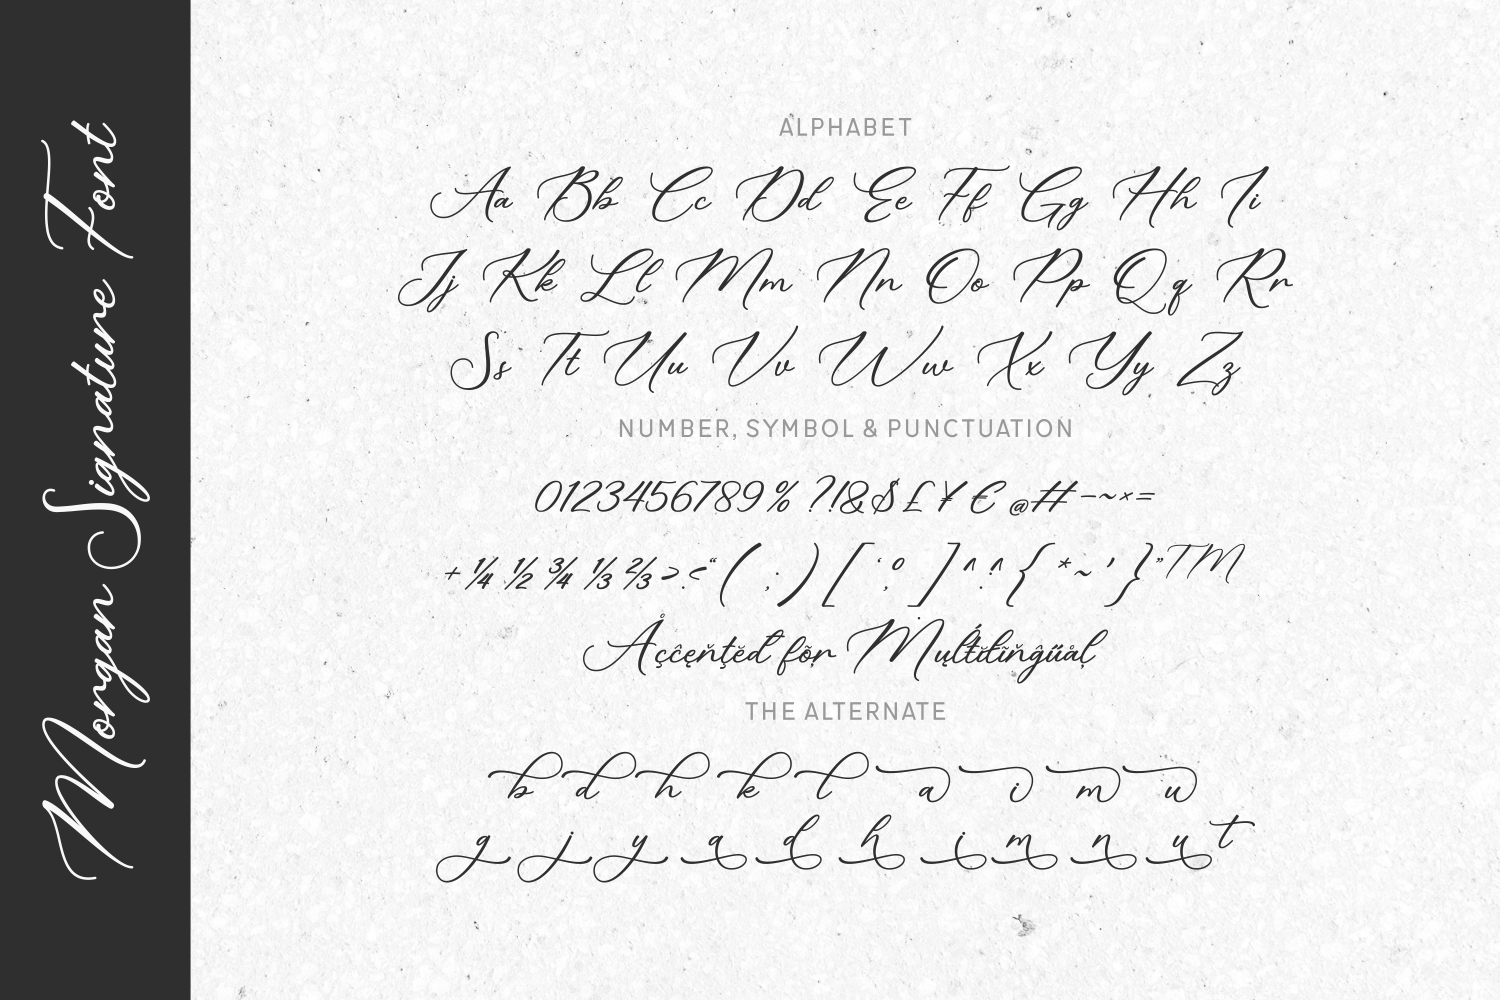 Morgan Signature Font
ALPHABET
Aa Bb Cc Dd Ee Ff Gg Hh Ii
Jj Kk Ll Mm Nn Oo Pp Qq Rr
Ss Tt Uu Vv Ww Xx Yy Zz
NUMBER, SYMBOL & PUNCTUATION
0123456789% ?!&$£¥€@#-~×=
+¼½¾⅓⅔>.<“(,;)[‘,º]^.^{*~’}”TM
Åçĉęňţëď fõŗ Mųľťıĺĩňĝűåļ
THE ALTERNATE
b d h k l a i m u
g j y a d h i m n u t